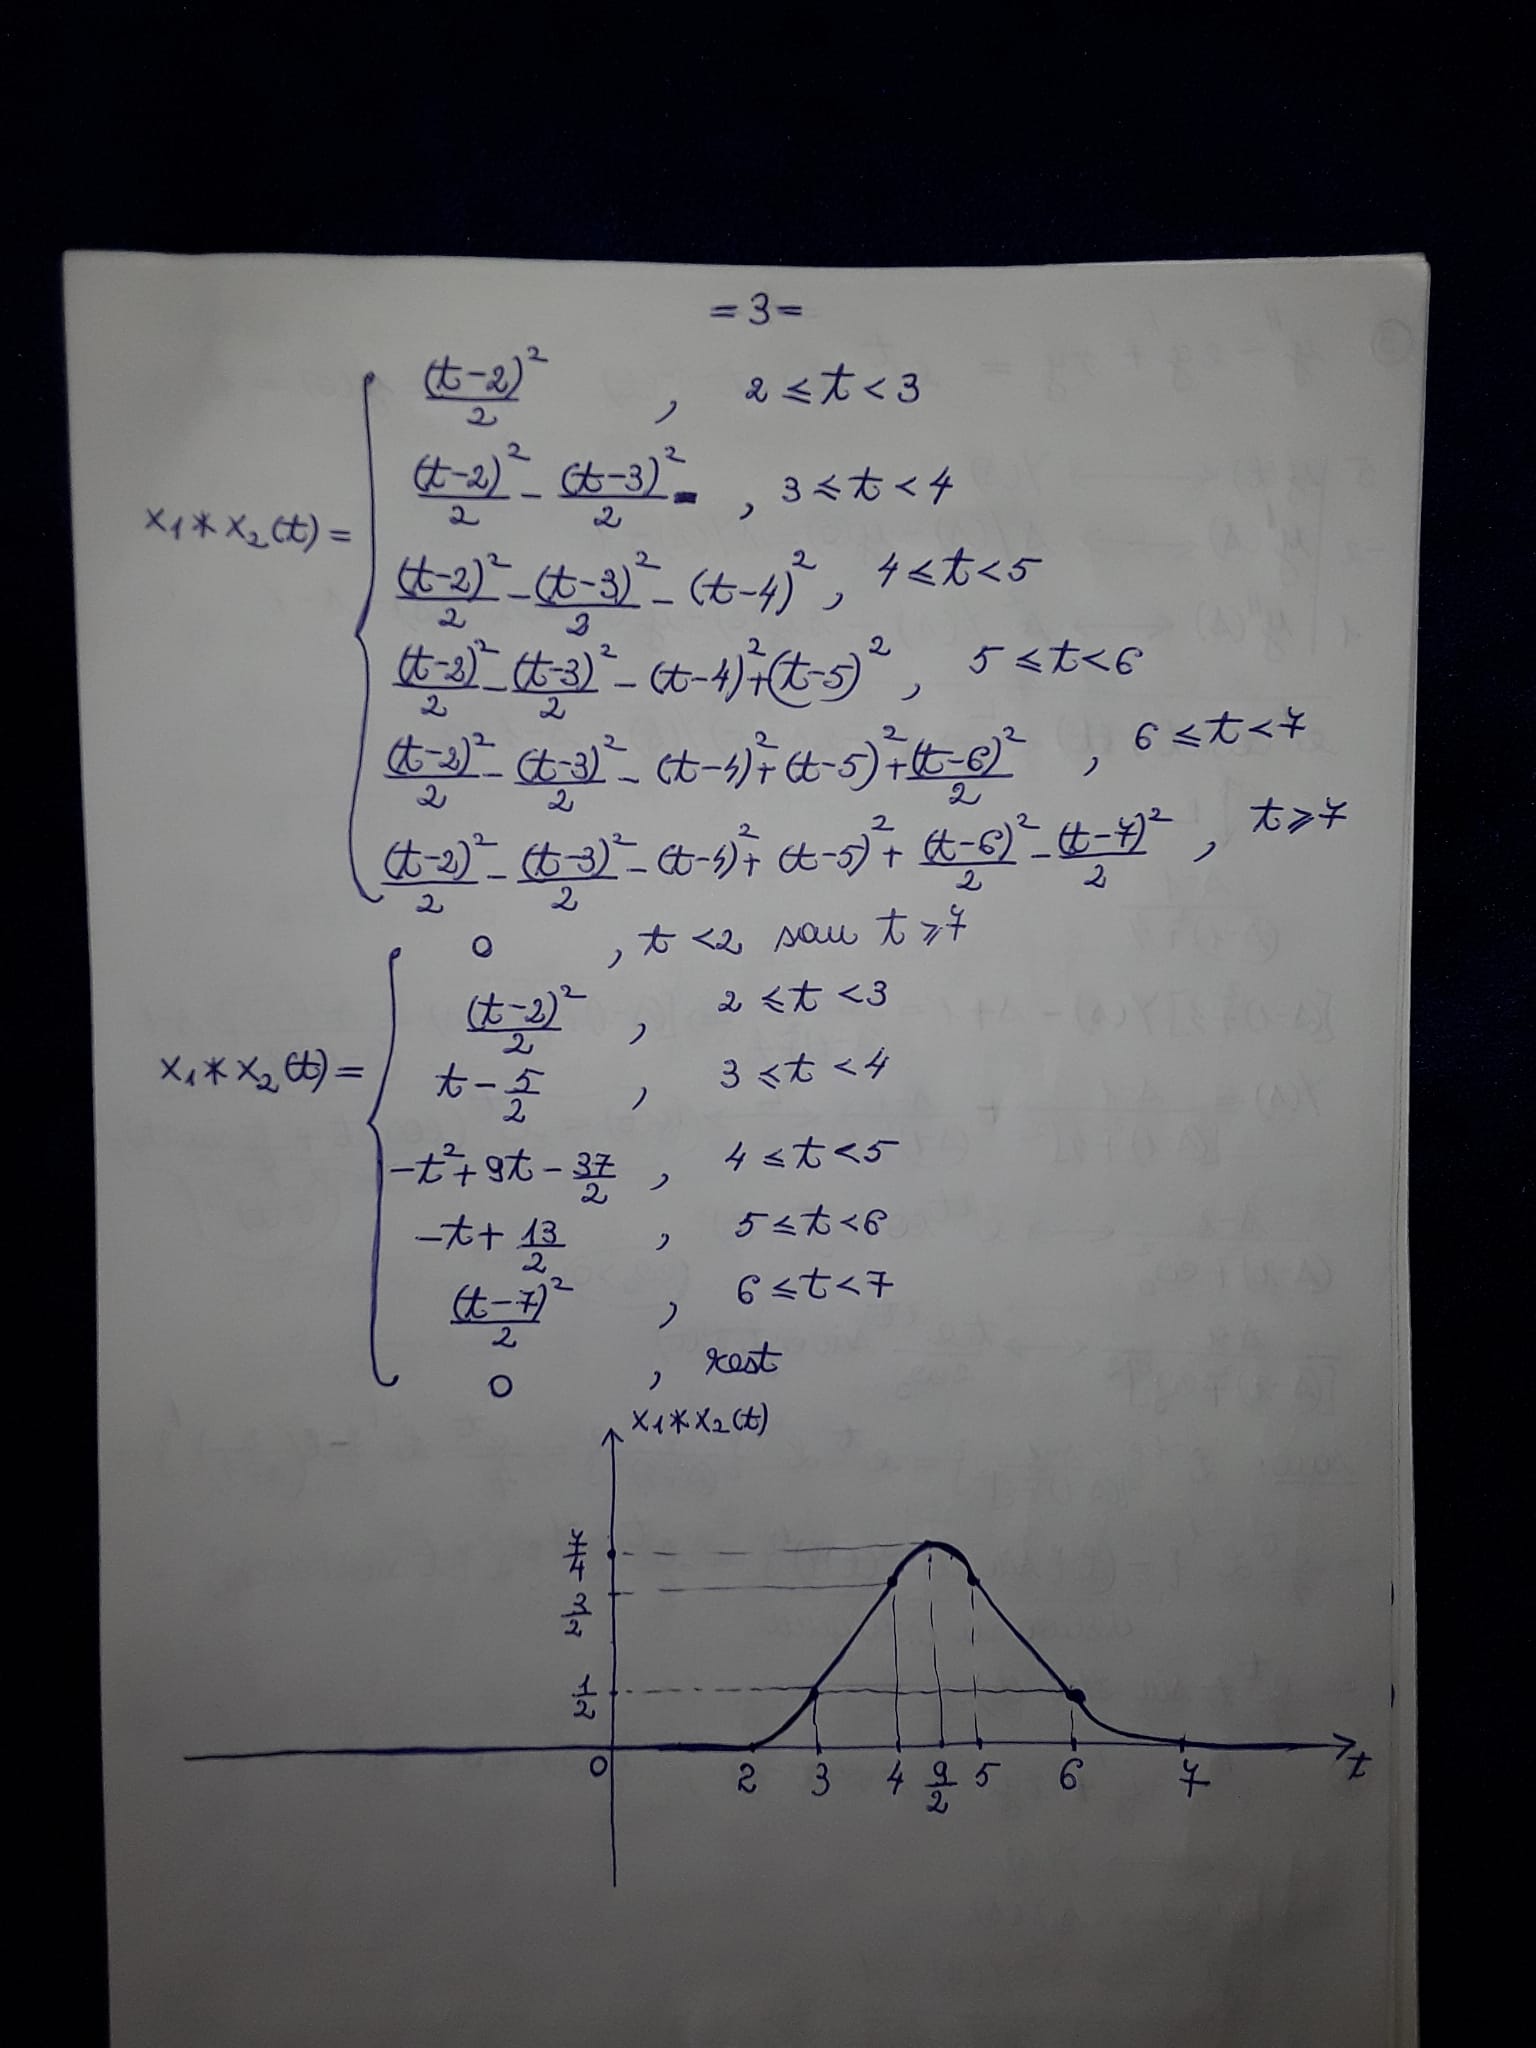 = 3 =
x₁ * x₂(t) = { (t-2)²/2 , 2 ⩽ t < 3
(t-2)²/2 - (t-3)²/2 , 3 ⩽ t < 4
(t-2)²/2 - (t-3)²/2 - (t-4)² , 4 ⩽ t < 5
(t-2)²/2 - (t-3)²/2 - (t-4)² + (t-5)² , 5 ⩽ t < 6
(t-2)²/2 - (t-3)²/2 - (t-4)² + (t-5)² + (t-6)²/2 , 6 ⩽ t < 7
(t-2)²/2 - (t-3)²/2 - (t-4)² + (t-5)² + (t-6)²/2 - (t-7)²/2 , t ⩾ 7
x₁ * x₂(t) = { 0 , t < 2 sau t ⩾ 7
(t-2)²/2 , 2 ⩽ t < 3
t - 5/2 , 3 ⩽ t < 4
-t² + 9t - 37/2 , 4 ⩽ t < 5
-t + 13/2 , 5 ⩽ t < 6
(t-7)²/2 , 6 ⩽ t < 7
0 , rest
x₁ * x₂(t)
7/4
3/2
1/2
0 2 3 4 9/2 5 6 7 t